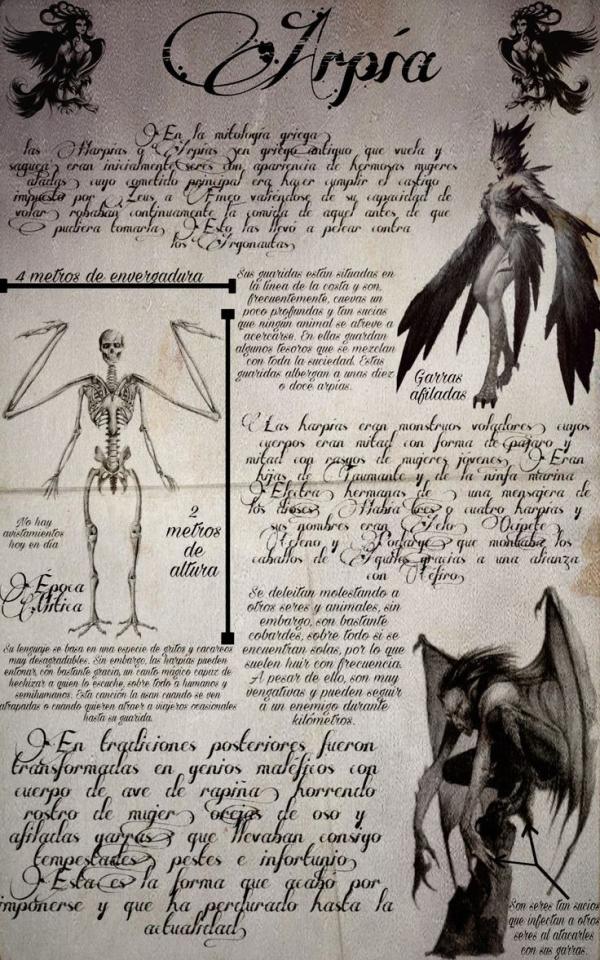 Arpía
En la mitología griega
las Harpías o Arpías (en griego antiguo que vuela y
saquea) eran inicialmente seres con apariencia de hermosas mujeres
aladas, cuyo cometido principal era hacer cumplir el castigo
impuesto por Zeus a Fineo valiéndose de su capacidad de
volar, robaban continuamente la comida de aquel antes de que
pudiera tomarla. Esto las llevó a pelear contra
los Argonautas
4 metros de envergadura
Sus guaridas están situadas en
la línea de la costa y son,
frecuentemente, cuevas un
poco profundas y tan sucias
que ningún animal se atreve a
acercarse. En ellas guardan
algunos tesoros que se mezclan
con toda la suciedad. Estas
guaridas albergan a unas diez
o doce arpías.
Garras
afiladas
Las harpías eran monstruos voladores, cuyos
cuerpos eran mitad con forma de pájaro y
mitad con rasgos de mujeres jóvenes. Eran
hijas de Taumante y de la ninfa marina
Electra, hermanas de una mensajera de
los dioses. Había tres o cuatro harpías y
sus nombres eran Aelo, Ocípete
Celeno y Podarge que montaba los
caballos de Aquiles gracias a una alianza
con Zéfiro
2
metros
de
altura
No hay
avistamientos
hoy en día
Época
Antica
Su lenguaje se basa en una especie de gritos y cacareos
muy desagradables. Sin embargo, las harpías pueden
entonar, con bastante gracia, un canto mágico capaz de
hechizar a quien lo escuche, sobre todo a humanos y
semihumanos. Esta canción la usan cuando se ven
atrapadas o cuando quieren atraer a viajeros ocasionales
hasta su guarida.
Se deleitan molestando a
otros seres y animales, sin
embargo, son bastante
cobardes, sobre todo si se
encuentran solas, por lo que
suelen huir con frecuencia.
A pesar de ello, son muy
vengativas y pueden seguir
a un enemigo durante
kilómetros.
En tradiciones posteriores fueron
transformadas en genios maléficos con
cuerpo de ave de rapiña, horrendo
rostro de mujer, orejas de oso y
afiladas garras, que llevaban consigo
tempestades, pestes e infortunio.
Esta es la forma que acabó por
imponerse y que ha perdurado hasta la
actualidad.
Son seres tan sucios
que infectan a otros
seres al atacarles
con sus garras.